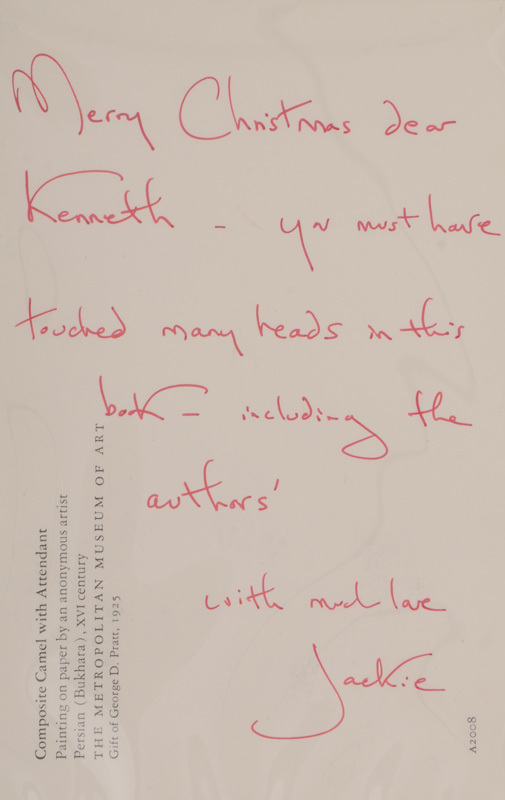 Merry Christmas dear
Kenneth – you must have
touched many heads in this
book – including the
authors'
with much love
Jackie
Composite Camel with Attendant
Painting on paper by an anonymous artist
Persian (Bukhara), XVI century
THE METROPOLITAN MUSEUM OF ART
Gift of George D. Pratt, 1925
A2008